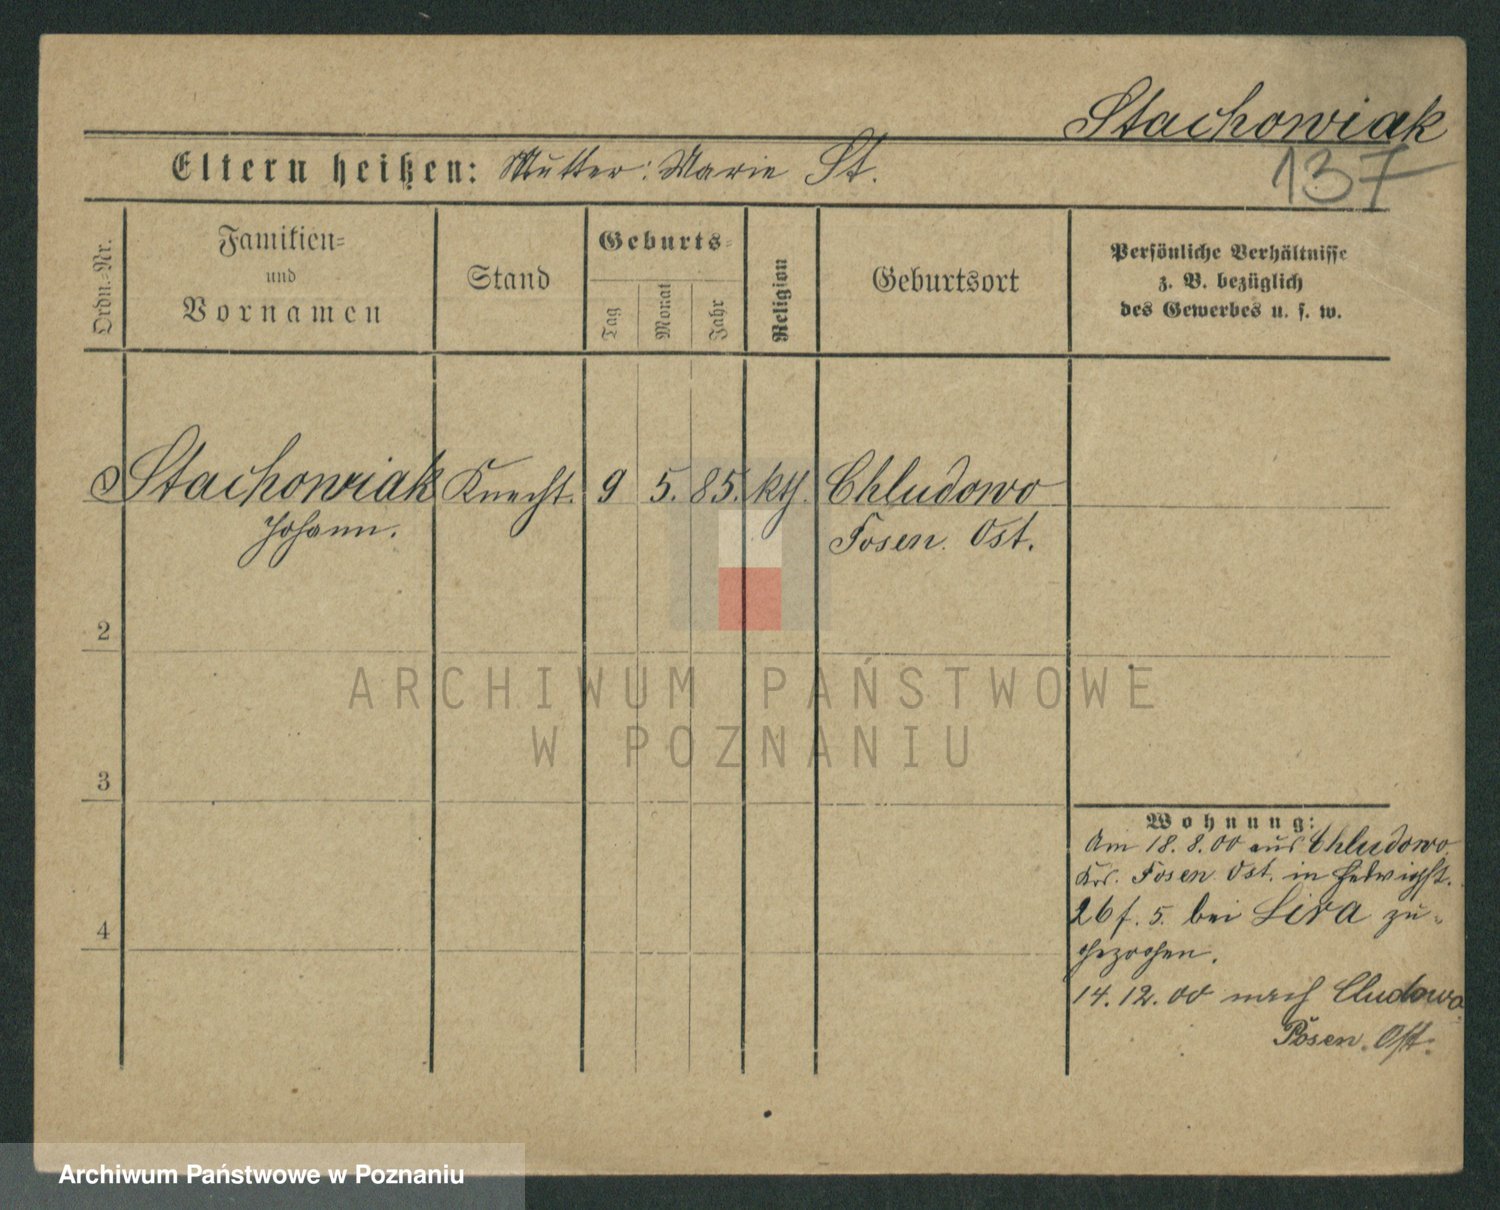 Stachowiak
137
Eltern heißen: Mutter: Marie St.
Ordn.-Nr.
Familien-
und
Vornamen
Stand
Geburts-
Tag
Monat
Jahr
Religion
Geburtsort
Persönliche Verhältnisse
z. B. bezüglich
des Gewerbes u. s. w.
Stachowiak Knecht. 9 5. 85. kth. Chludowo
Johann. Posen. Ost.
2
3
4
Wohnung:
Am 18. 8. 00 aus Chludowo
Krs. Posen. Ost. in Hedwigst.
26 f. 5. bei Lira zu-
gezogen.
14. 12. 00 nach Cludowo
Posen. Ost.
ARCHIWUM PAŃSTWOWE
W POZNANIU
Archiwum Państwowe w Poznaniu